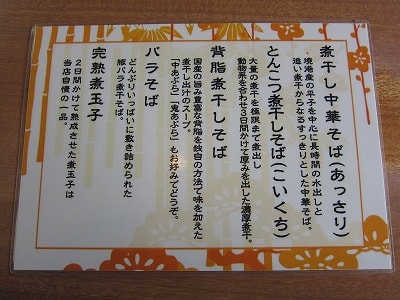 煮干し中華そば（あっさり）
・境港産の平子を中心に長時間の水出しと
追い煮干からなるすっきりとした中華そば。
とんこつ煮干しそば（こいくち）
大量の煮干を極限まで煮出し
動物系を合わせ３日間かけて厚みを出した濃厚煮干。
背脂煮干しそば
国産の旨み重富な背脂を独自の方法で味を加えた
煮干し出汁のスープ。
「中あぶら」「鬼あぶら」もお好みでどうぞ。
バラそば
どんぶりいっぱいに敷き詰められた
豚バラ煮干そば。
完熟煮玉子
２日間かけて熟成させた煮玉子は
当店自慢の一品。